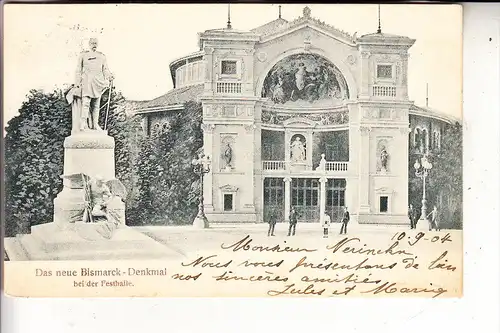 10.9.04
Das neue Bismarck-Denkmal
bei der Festhalle.
Monsieur Nerinckx
Nous vous présentons de loin
nos sincères amitiés
Jules et Marie